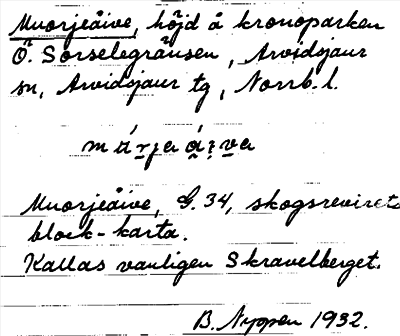 Muorjeåive, höjd å kronoparken
Ö. Sorselegränsen, Arvidsjaur
sn, Arvidsjaur tg, Norrb. l.
Muorjeåive, G. 34, skogsrevirets
block-karta.
Kallas vanligen Skravelberget.
B. Nyppen 1932.